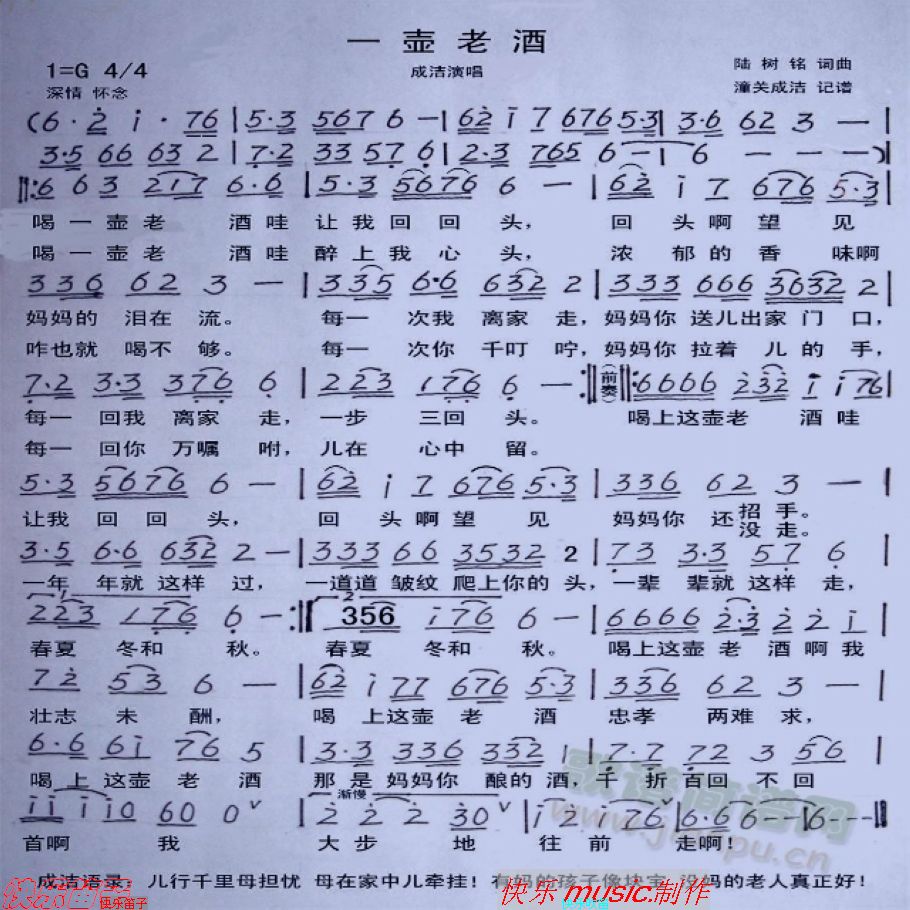 一 壶 老 酒
1=G 4/4
成洁演唱
陆 树 铭 词曲
深情 怀念
潼关成洁 记谱
(6· 2 i · 76 | 5·3 5676 6 — | 62 i 7 676 5·3 | 3·6 62 3 — |
3·5 66 63 2 | 7·2 33 57 6 | 2·3 765 6 — | 6 — — —)
‖: 6 63 217 6·6 | 5·3 5676 6 — | 62 i 7 676 5·3 |
喝 一 壶 老 酒哇 让我 回回 头, 回 头啊 望 见
喝 一 壶 老 酒哇 醉上 我心 头, 浓 郁的 香 味啊
336 62 3 — | 335 6·6 632 2 | 333 666 3632 2 |
妈妈的 泪在 流。 每一 次我 离家 走, 妈妈你 送儿出家 门 口,
咋也就 喝不 够。 每一 次你 千叮 咛, 妈妈你 拉着 儿 的 手,
7·2 3·3 376 6 | 223 176 6 — :‖(前奏)‖: 6666 232 i i76 |
每一 回我 离家 走, 一步 三回 头。 喝上这壶老 酒哇
每一 回你 万嘱 咐, 儿在 心中 留。
5·3 5676 6 — | 62 i 7 676 5·3 | 336 62 3 — |
让我 回回 头, 回 头啊 望 见 妈妈你 还招 手。
没走。
3·5 6·6 632 2 — | 333 66 3532 2 | 73 3·3 57 6 |
一年 年就 这样 过, 一道道 皱纹 爬上你的 头, 一辈 辈就 这样 走,
1
2
223 176 6 — :‖ 356 i76 6 — | 6666 2·3 2 2 i |
春夏 冬和 秋。 春夏 冬和 秋。 喝上这壶 老 酒啊我
72 53 6 — | 62 i 77 676 5·3 | 336 62 3 — |
壮志 未 酬, 喝 上这壶 老 酒 忠孝 两难 求,
6·6 6i 76 5 | 3·3 336 332 1 | 7·7 72 3 56 |
喝上 这壶 老 酒 那是 妈妈你 酿的 酒, 千折 百回 不回
渐慢
i i i i0 60 0 ∨ | 2 2 2 30 ∨ | i 2 i 76 | 6·6 6 — 6 — | 6 — — — ‖
首啊 我 大步 地 往前 走啊!
歌谱简谱网
www.jianpu.cn
成洁语录: 儿行千里母担忧 母在家中儿牵挂! 有妈的孩子像块宝 没妈的老人真正好!
快乐笛子
快乐 music.制作